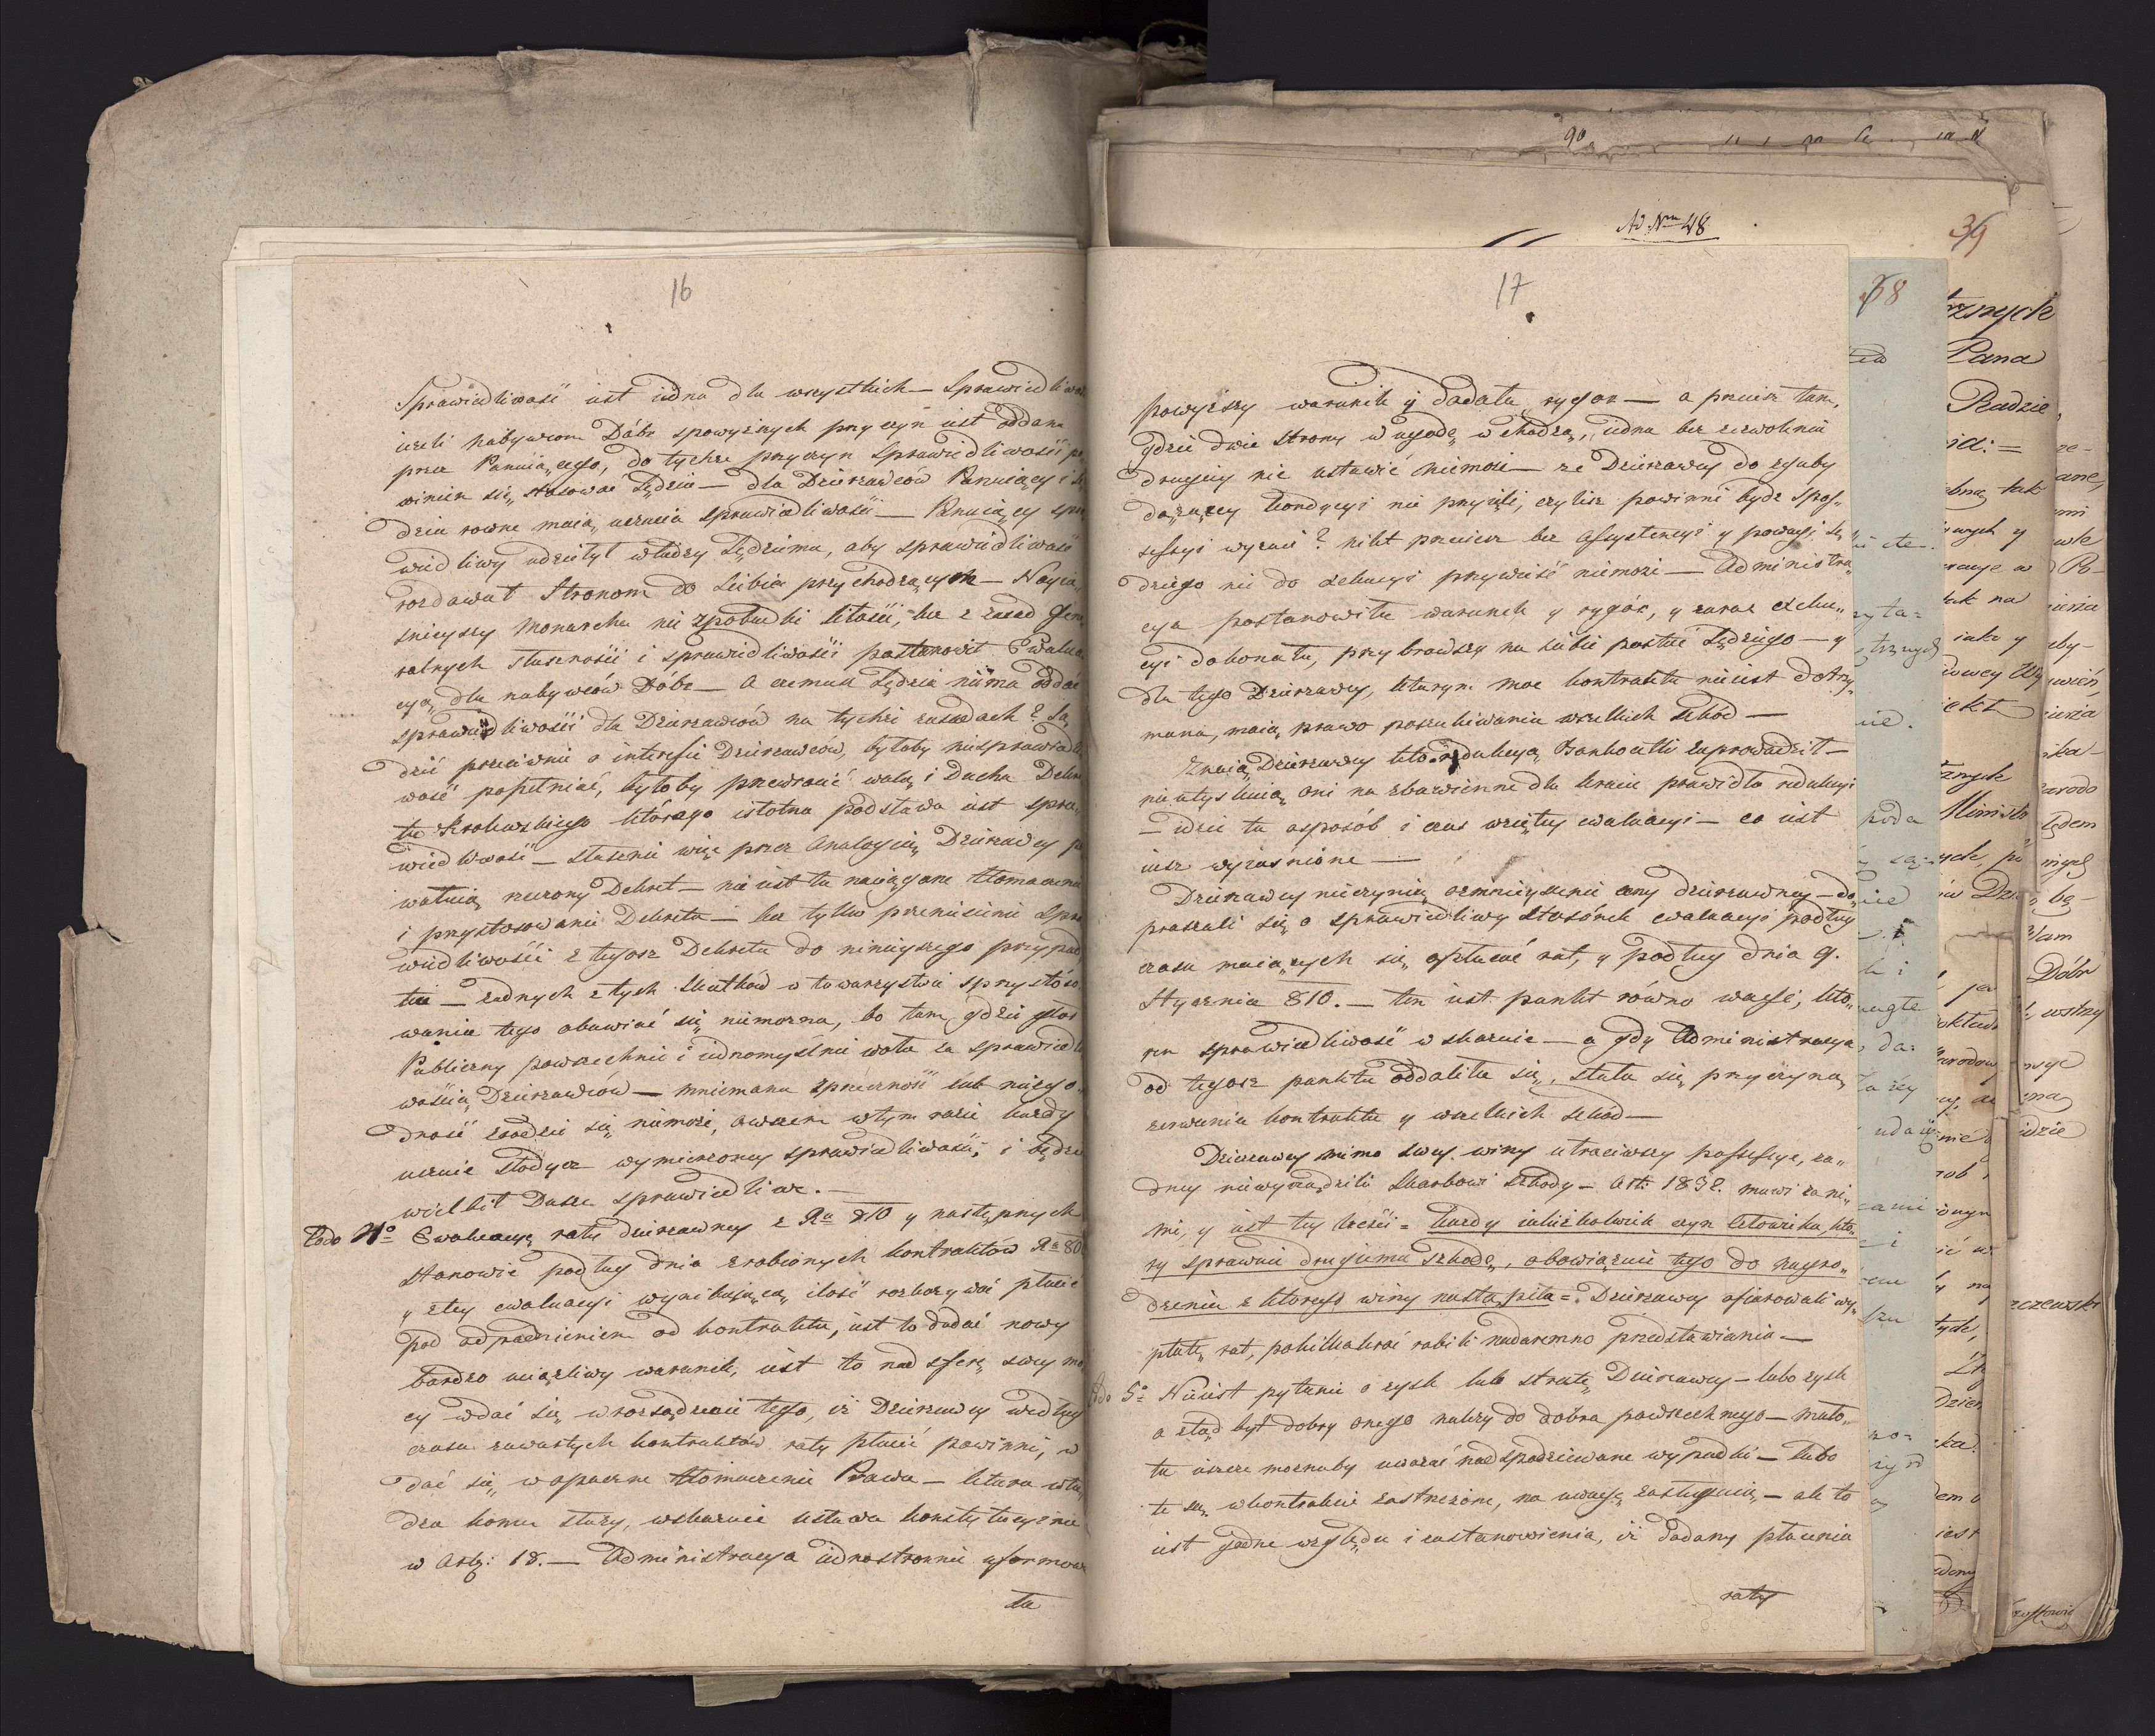 16
Sprawiedliwość iest iedna dla wszystkich — Sprawiedliwość
ieżeli nabywcom Dóbr z powyższych przyczyn iest oddana
przez Panuiącego, do tychże przyczyn Sprawiedliwości po
winien się stosować Sędzia — dla Dzierżawców Panuiący i Sę
dzia równe maią uczucia sprawiedliwości — Panuiący spra
wiedliwy udzielył władzy Sędziemu, aby sprawiedliwość
rozdawał Stronom do siebie przychodzącym — Nayia
śnieyszy Monarcha nie z pobudki litości, lecz z zasad gene
ralnych słuszności i sprawiedliwości postanowił Ewalua
cyą dla nabywców Dóbr — A czemuż Sędzia nie ma oddać
sprawiedliwości dla Dzierżawców na tychże zasadach? Są
dzić przeciwnie o interesie Dzierżawców, byłoby niesprawiedli
wość popełniać, byłoby przewracać wolą i Ducha Dekre
tu Królewskiego którego istotna podstawa iest spra
wiedliwość — słusznie więc przez Analogią Dzierżawcy po
wołuią rzeczony Dekret — nie iest tu naciągane tłomaczenie
i przystosowanie Dekretu — lecz tylko przeniesienie Spra
wiedliwości z tegoż Dekretu do ninieyszego przypad
ku — żadnych z tych skutków w towarzystwie z przystoso
wania tego obawiać się niemożna, bo tam, gdzie głos
Publiczny powszechnie i iednomyślnie woła za sprawiedli
wością Dzierżawców — mniemana sprzeczność lub niezgo
dność zrodzić się niemoże, owszem w tym razie każdy
uczuie słodycz wymierzoney sprawiedliwości, i będzie
wielbił Dusze sprawiedliwe. —
Ewaluacyą raty dzierżawney z Ru 810 y następnych
stanowić podług dnia zrobionych kontraktów Ru 80
y z tey ewaluacyi wynikaiącą ilość rozkazywać płacić
pod odpadnieniem od kontraktu, iest to dodać nowy
bardzo uciążliwy warunek, iest to nad sferę swey mo
cy wdać się w rozsądzenie tego, iż Dzierżawcy według
czasu zawartych kontraktów raty płacić powinni, w
dać się w opaczne tłomaczenie Prawa — która wła
dza komu służy, wskazuie ustawa konstytucyina
w Arty: 18. — Administracya iednostronnie uformowa
ła
Ad Nrm 48
39
68
17
powyższy warunek y dodała rygor — a przecież tam,
gdzie dwie strony w ugodę wchodzą, iedna bez zezwolenia
drugiey nic ustawić niemoże — że Dzierżawcy do zguby
dążącey kondycyi nie przyięli, czyliż powinni bydź z pos„
sessyi wyzuci? nikt przecież bez assystencyi y powagi Sę„
dziego nic do exekucyi przywieść niemoże — Administra„
cya postanowiła warunek y rygór, y zaraz exeku„
cyi dokonała, przybrawszy na siebie postać Sędziego — y
dla tego Dzierżawcy, którym moc kontraktu nieiest dotrzy„
mana, maią prawo poszukiwania wszelkich szkód —
Znaią Dzierżawcy kto redukcyą Bankocetli zaprowadził —
nieutyskuią oni na zbawienne dla kraiu prawidło redukcyi
— idzie tu o sposób i czas wziętey ewaluacyi — co iest
iuż wyiaśnione —
Dzierżawcy nieczynią zmnieyszenie ceny dzierżawney — do„
praszali się o sprawiedliwy stosónek ewaluacyi podług
czasu maiących się opłacać rat, y podług dnia 9.
Stycznia 810. — ten iest punkt równo wagi, któ„
ren sprawiedliwość wskazuie — a gdy Administracya
od tegoż punktu oddaliła się, stała się przyczyną
zerwania kontraktu y wszelkich szkód —
Dzierżawcy mimo swey winy utraciwszy possessye, ża„
dney niewyrządzili Skarbowi szkody — Art: 1382. mówi za ni„
mi, y iest tey treści = każdy iakiżkolwiek czyn człowieka, któ„
ry sprawuie drugiemu szkodę, obowiązuie tego do nagro„
dzenia z którego winy nastąpiła =. Dzierżawcy ofiarowali wy„
płatę rat, pokilkakroć robili nadaremno przedstawiania —
5o Nieiest pytanie o zysk lub stratę Dzierżawcy — lubo zysk
a ztąd byt dobry onego należy do dobra powszechnego — mało„
te są w kontrakcie zastrzeżone, na uwagę zasługuią — ale to
iest godne względu i zastanowienia, iż dodany płacenia
raty